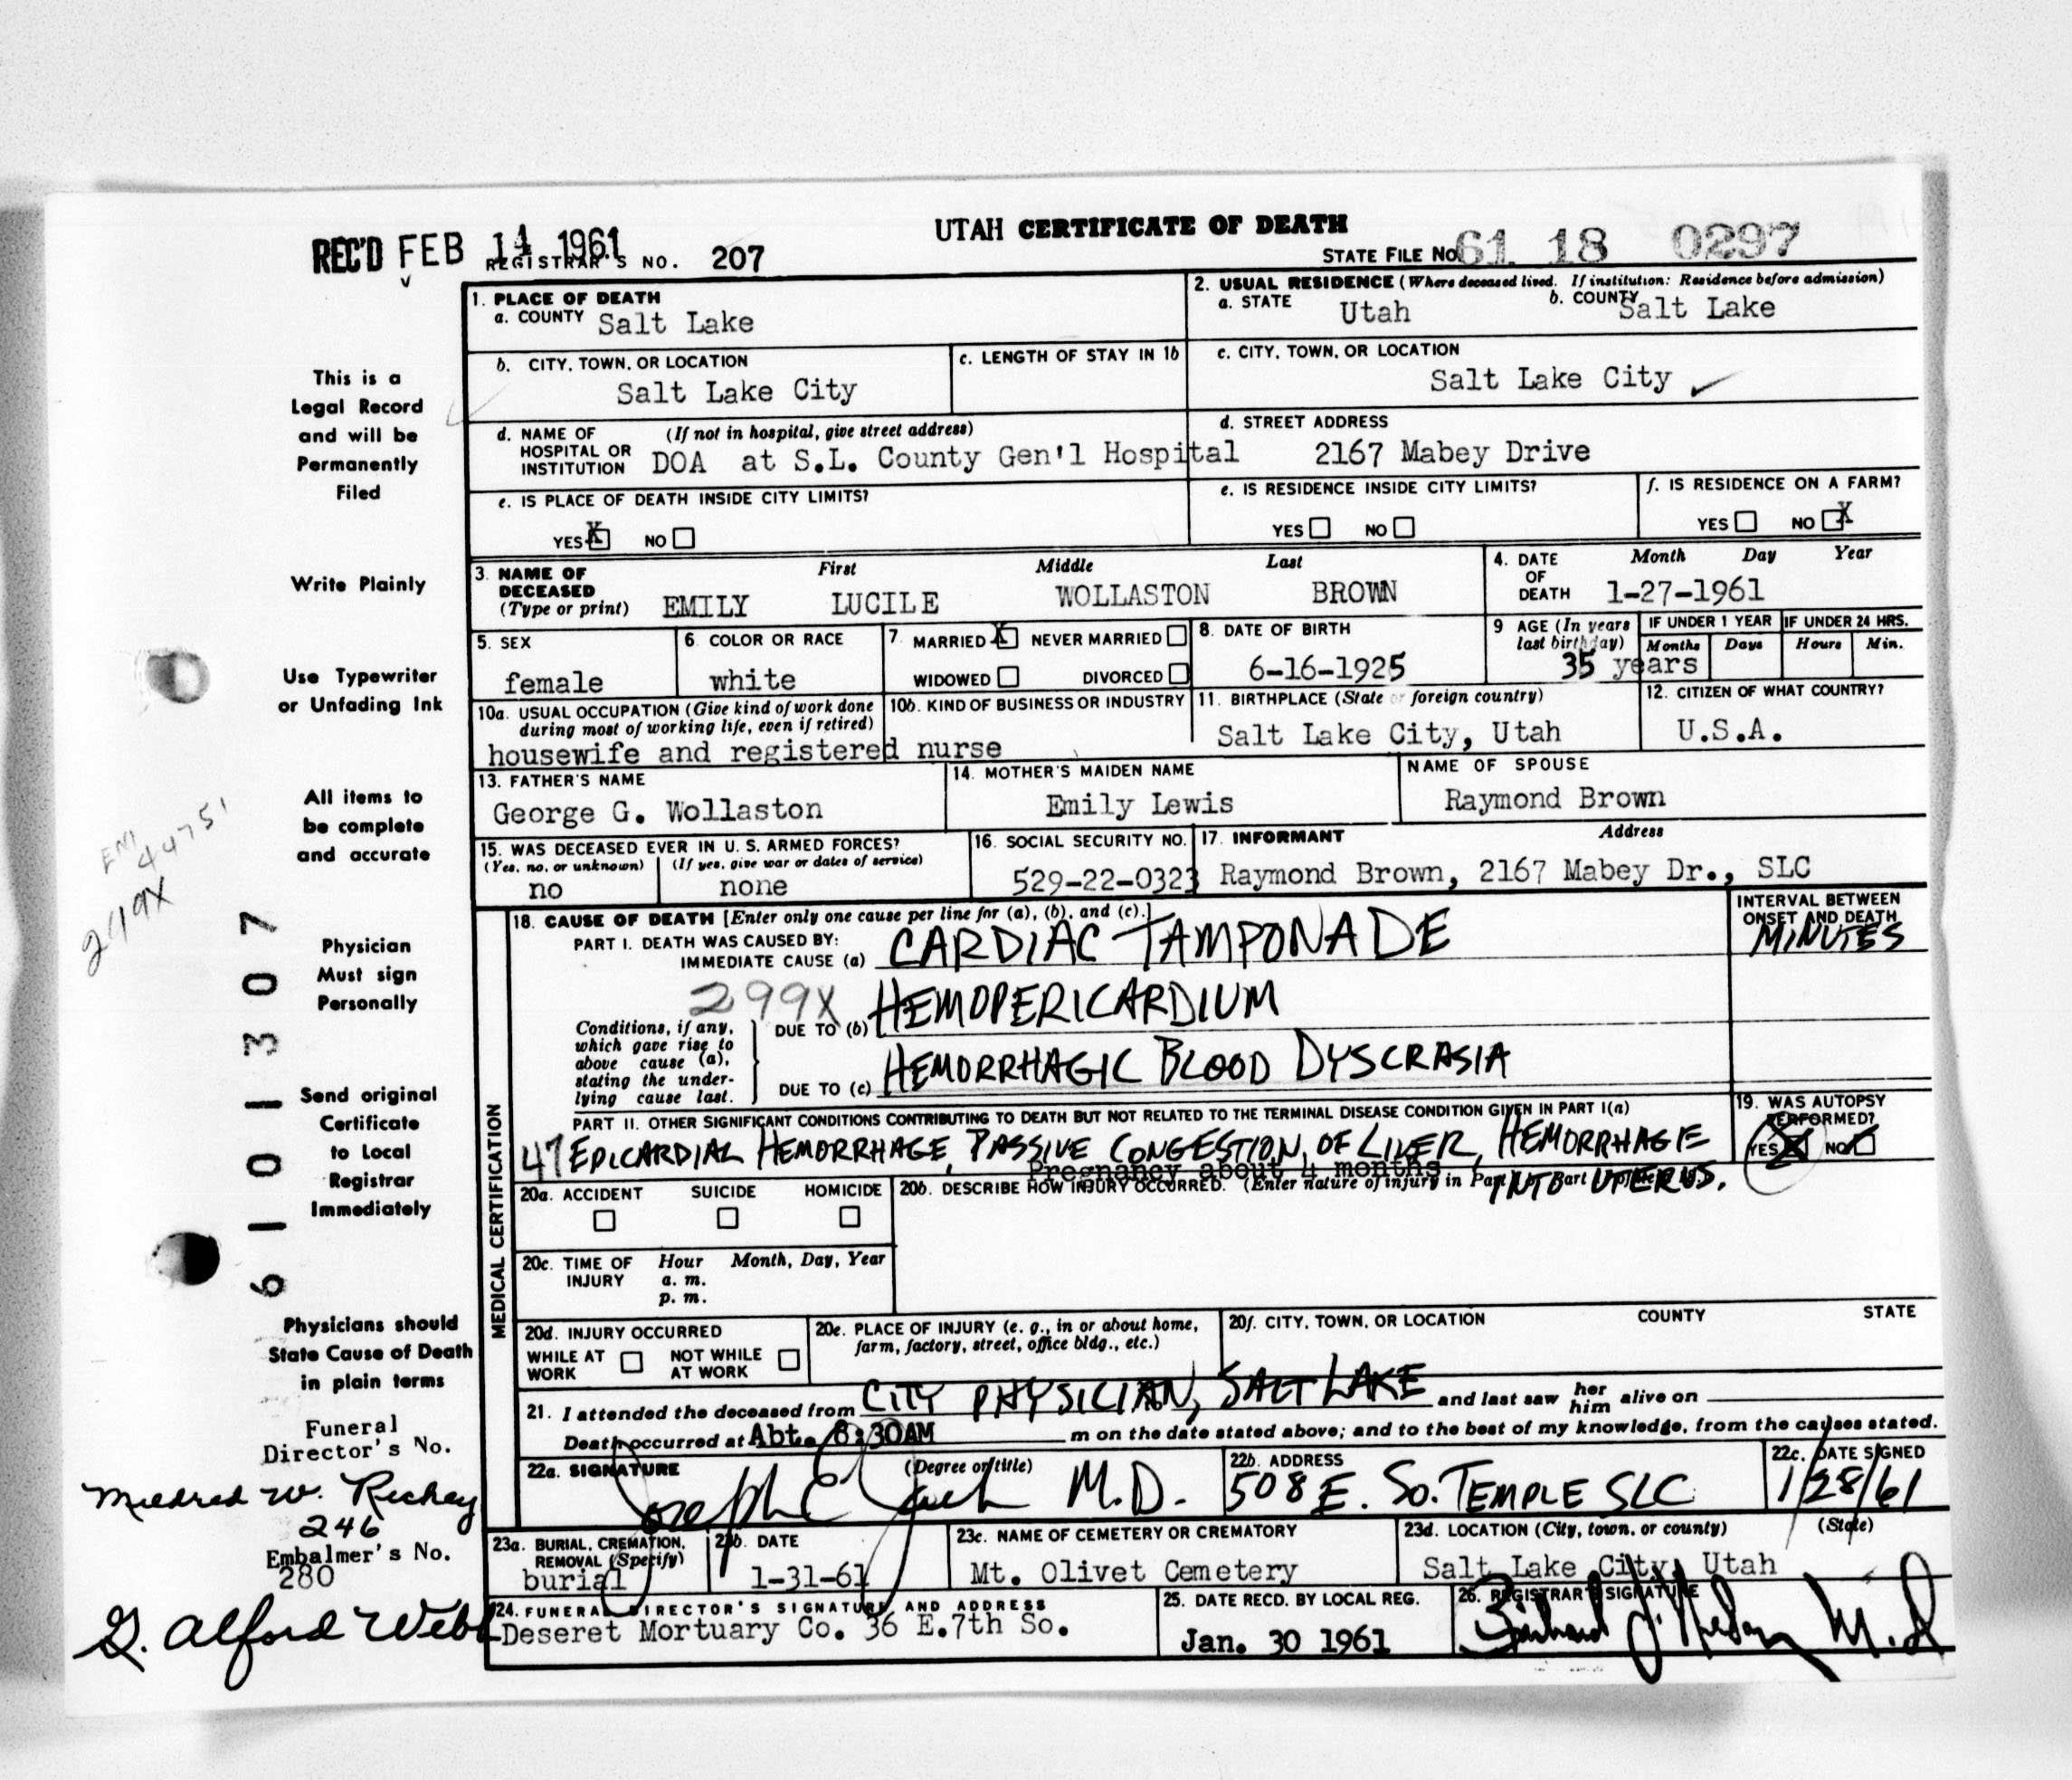 UTAH CERTIFICATE OF DEATH
REC'D FEB 14 1961
REGISTRAR'S NO. 207
STATE FILE No. 61 18 0297
1. PLACE OF DEATH
a. COUNTY Salt Lake
2. USUAL RESIDENCE (Where deceased lived. If institution: Residence before admission)
a. STATE Utah b. COUNTY Salt Lake
b. CITY, TOWN, OR LOCATION
Salt Lake City
c. LENGTH OF STAY IN 1b
c. CITY, TOWN, OR LOCATION
Salt Lake City
d. NAME OF HOSPITAL OR INSTITUTION (If not in hospital, give street address)
DOA at S.L. County Gen'l Hospital
d. STREET ADDRESS
2167 Mabey Drive
e. IS PLACE OF DEATH INSIDE CITY LIMITS?
YES X NO
e. IS RESIDENCE INSIDE CITY LIMITS?
YES NO
f. IS RESIDENCE ON A FARM?
YES NO X
3. NAME OF DECEASED (Type or print)
First Middle Last
EMILY LUCILE WOLLASTON BROWN
4. DATE OF DEATH Month Day Year
1-27-1961
5. SEX
female
6. COLOR OR RACE
white
7. MARRIED X NEVER MARRIED
WIDOWED DIVORCED
8. DATE OF BIRTH
6-16-1925
9 AGE (In years last birthday)
35 years
IF UNDER 1 YEAR IF UNDER 24 HRS.
Months Days Hours Min.
10a. USUAL OCCUPATION (Give kind of work done during most of working life, even if retired)
housewife and registered nurse
10b. KIND OF BUSINESS OR INDUSTRY
11. BIRTHPLACE (State or foreign country)
Salt Lake City, Utah
12. CITIZEN OF WHAT COUNTRY?
U.S.A.
13. FATHER'S NAME
George G. Wollaston
14. MOTHER'S MAIDEN NAME
Emily Lewis
NAME OF SPOUSE
Raymond Brown
15. WAS DECEASED EVER IN U. S. ARMED FORCES?
(Yes, no, or unknown) (If yes, give war or dates of service)
no none
16. SOCIAL SECURITY NO.
529-22-0323
17. INFORMANT Address
Raymond Brown, 2167 Mabey Dr., SLC
18. CAUSE OF DEATH [Enter only one cause per line for (a), (b), and (c).]
PART I. DEATH WAS CAUSED BY:
IMMEDIATE CAUSE (a) CARDIAC TAMPONADE
INTERVAL BETWEEN ONSET AND DEATH
MINUTES
299X
Conditions, if any, which gave rise to above cause (a), stating the underlying cause last.
DUE TO (b) HEMOPERICARDIUM
DUE TO (c) HEMORRHAGIC BLOOD DYSCRASIA
PART II. OTHER SIGNIFICANT CONDITIONS CONTRIBUTING TO DEATH BUT NOT RELATED TO THE TERMINAL DISEASE CONDITION GIVEN IN PART I(a)
47 EPICARDIAL HEMORRHAGE, PASSIVE CONGESTION, OF LIVER, HEMORRHAGE
INTO UTERUS.
Pregnancy about 4 months
19. WAS AUTOPSY PERFORMED?
YES X NO
20a. ACCIDENT SUICIDE HOMICIDE
20b. DESCRIBE HOW INJURY OCCURRED. (Enter nature of injury in Part
20c. TIME OF INJURY Hour Month, Day, Year
a. m.
p. m.
20d. INJURY OCCURRED
WHILE AT WORK NOT WHILE AT WORK
20e. PLACE OF INJURY (e. g., in or about home, farm, factory, street, office bldg., etc.)
20f. CITY, TOWN, OR LOCATION COUNTY STATE
21. I attended the deceased from CITY PHYSICIAN, SALT LAKE and last saw her him alive on
Death occurred at Abt. 8:30AM m on the date stated above; and to the best of my knowledge, from the causes stated.
22a. SIGNATURE (Degree or title)
Joseph E M.D.
22b. ADDRESS
508 E. So. TEMPLE SLC
22c. DATE SIGNED
1/28/61
23a. BURIAL, CREMATION, REMOVAL (Specify)
burial
23b. DATE
1-31-61
23c. NAME OF CEMETERY OR CREMATORY
Mt. Olivet Cemetery
23d. LOCATION (City, town, or county) (State)
Salt Lake City, Utah
24. FUNERAL DIRECTOR'S SIGNATURE AND ADDRESS
Deseret Mortuary Co. 36 E.7th So.
25. DATE RECD. BY LOCAL REG.
Jan. 30 1961
26. REGISTRAR'S SIGNATURE
M.D
MEDICAL CERTIFICATION
This is a
Legal Record
and will be
Permanently
Filed
Write Plainly
Use Typewriter
or Unfading Ink
All items to
be complete
and accurate
Physician
Must sign
Personally
Send original
Certificate
to Local
Registrar
Immediately
Physicians should
State Cause of Death
in plain terms
Funeral
Director's No.
Mildred W. Richey
246
Embalmer's No.
280
G. Alford Webb
44751
249X
6101307